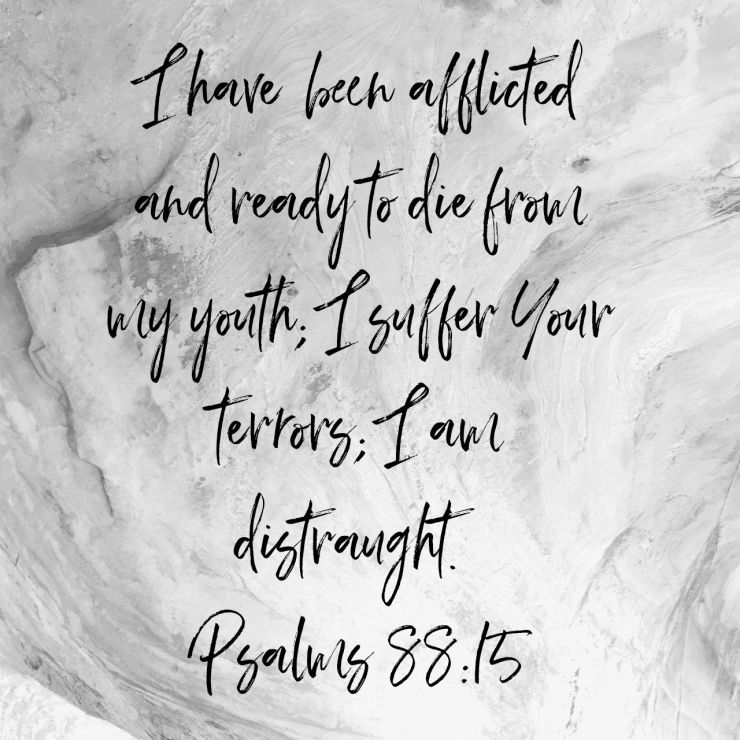 I have been afflicted
and ready to die from
my youth; I suffer Your
terrors; I am
distraught.
Psalms 88:15